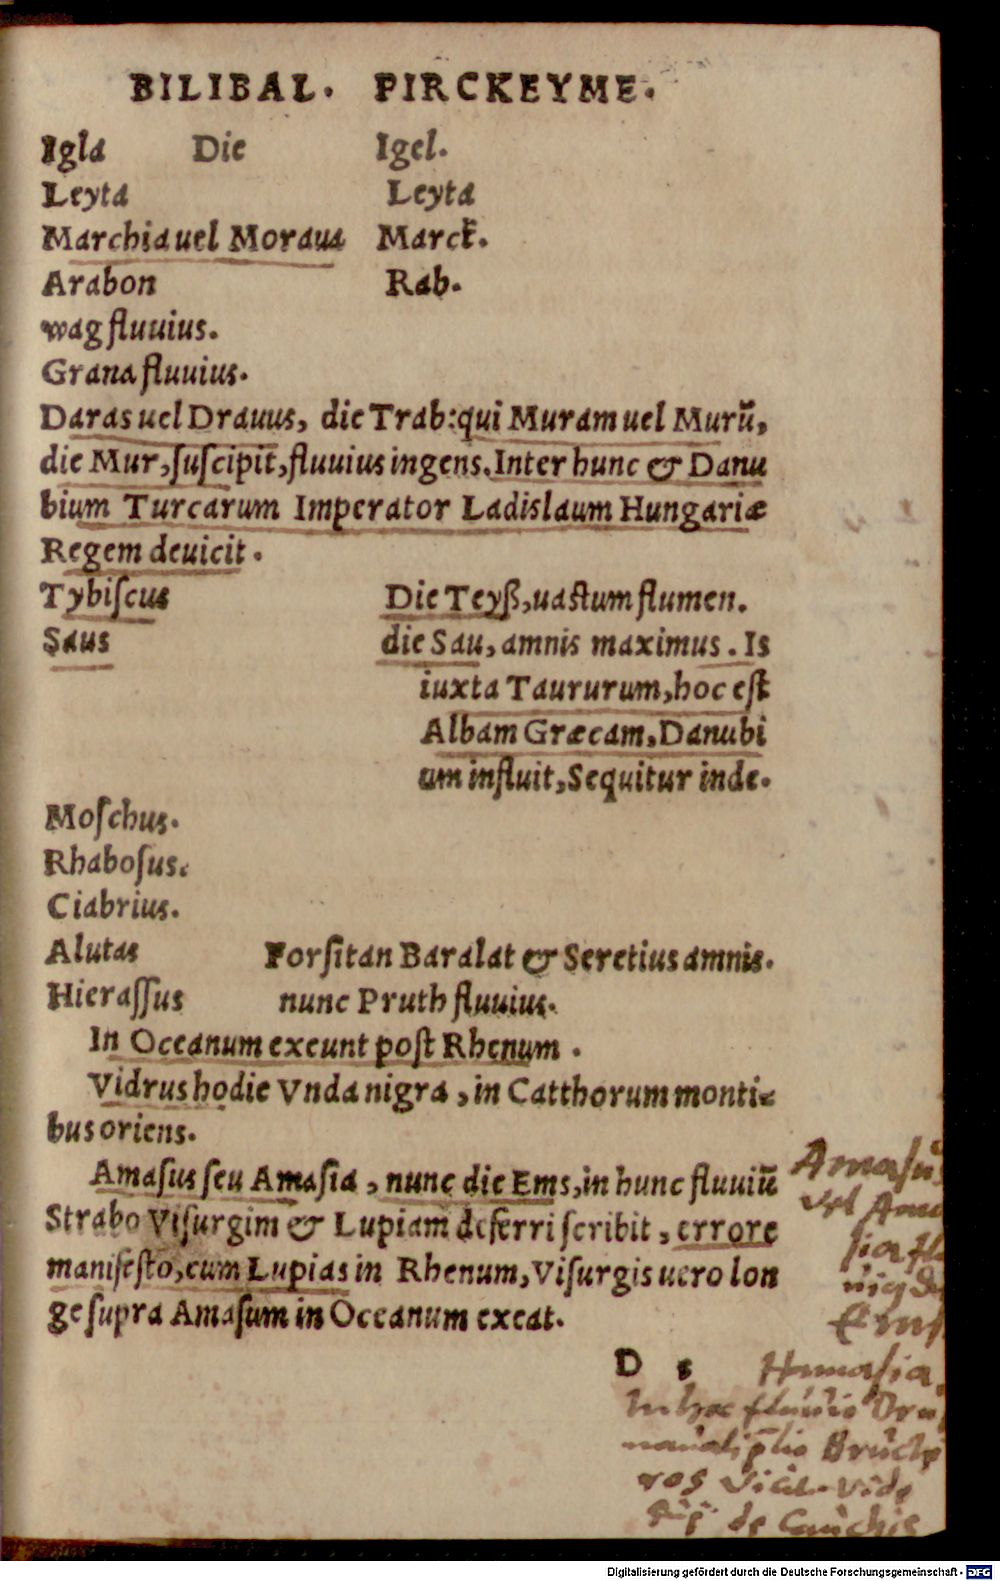 BILIBAL. PIRCKEYME.
Igla Die Igel.
Leyta Leyta
Marchia uel Moraua Marck.
Arabon Rab.
wag fluuius.
Grana fluuius.
Daras uel Drauus, die Trab: qui Muram uel Murū,
die Mur, ſuſcipit, fluuius ingens. Inter hunc & Danu
bium Turcarum Imperator Ladislaum Hungariæ
Regem deuicit.
Tybiſcus Die Teyß, uaſtum flumen.
Saus die Sau, amnis maximus. Is
iuxta Taururum, hoc eſt
Albam Græcam, Danubi
um influit, Sequitur inde.
Moſchus.
Rhaboſus.
Ciabrius.
Alutas Forſitan Baralat & Seretius amnis.
Hieraſſus nunc Pruth fluuius.
In Oceanum exeunt poſt Rhenum.
Vidrus hodie Vnda nigra, in Catthorum monti-
bus oriens.
Amaſus ſeu Amaſia, nunc die Ems, in hunc fluuiū
Strabo Viſurgim & Lupiam deferri ſcribit, errore
manifeſto, cum Lupias in Rhenum, Viſurgis uero lon
ge ſupra Amaſum in Oceanum exeat.
Amaſus
vel Ama
ſia
Ems
D s
Hamaſia
In hoc fluuio
Bructe
ros vicit. vide
de Cauchis
Digitalisierung gefördert durch die Deutsche Forschungsgemeinschaft - DFG